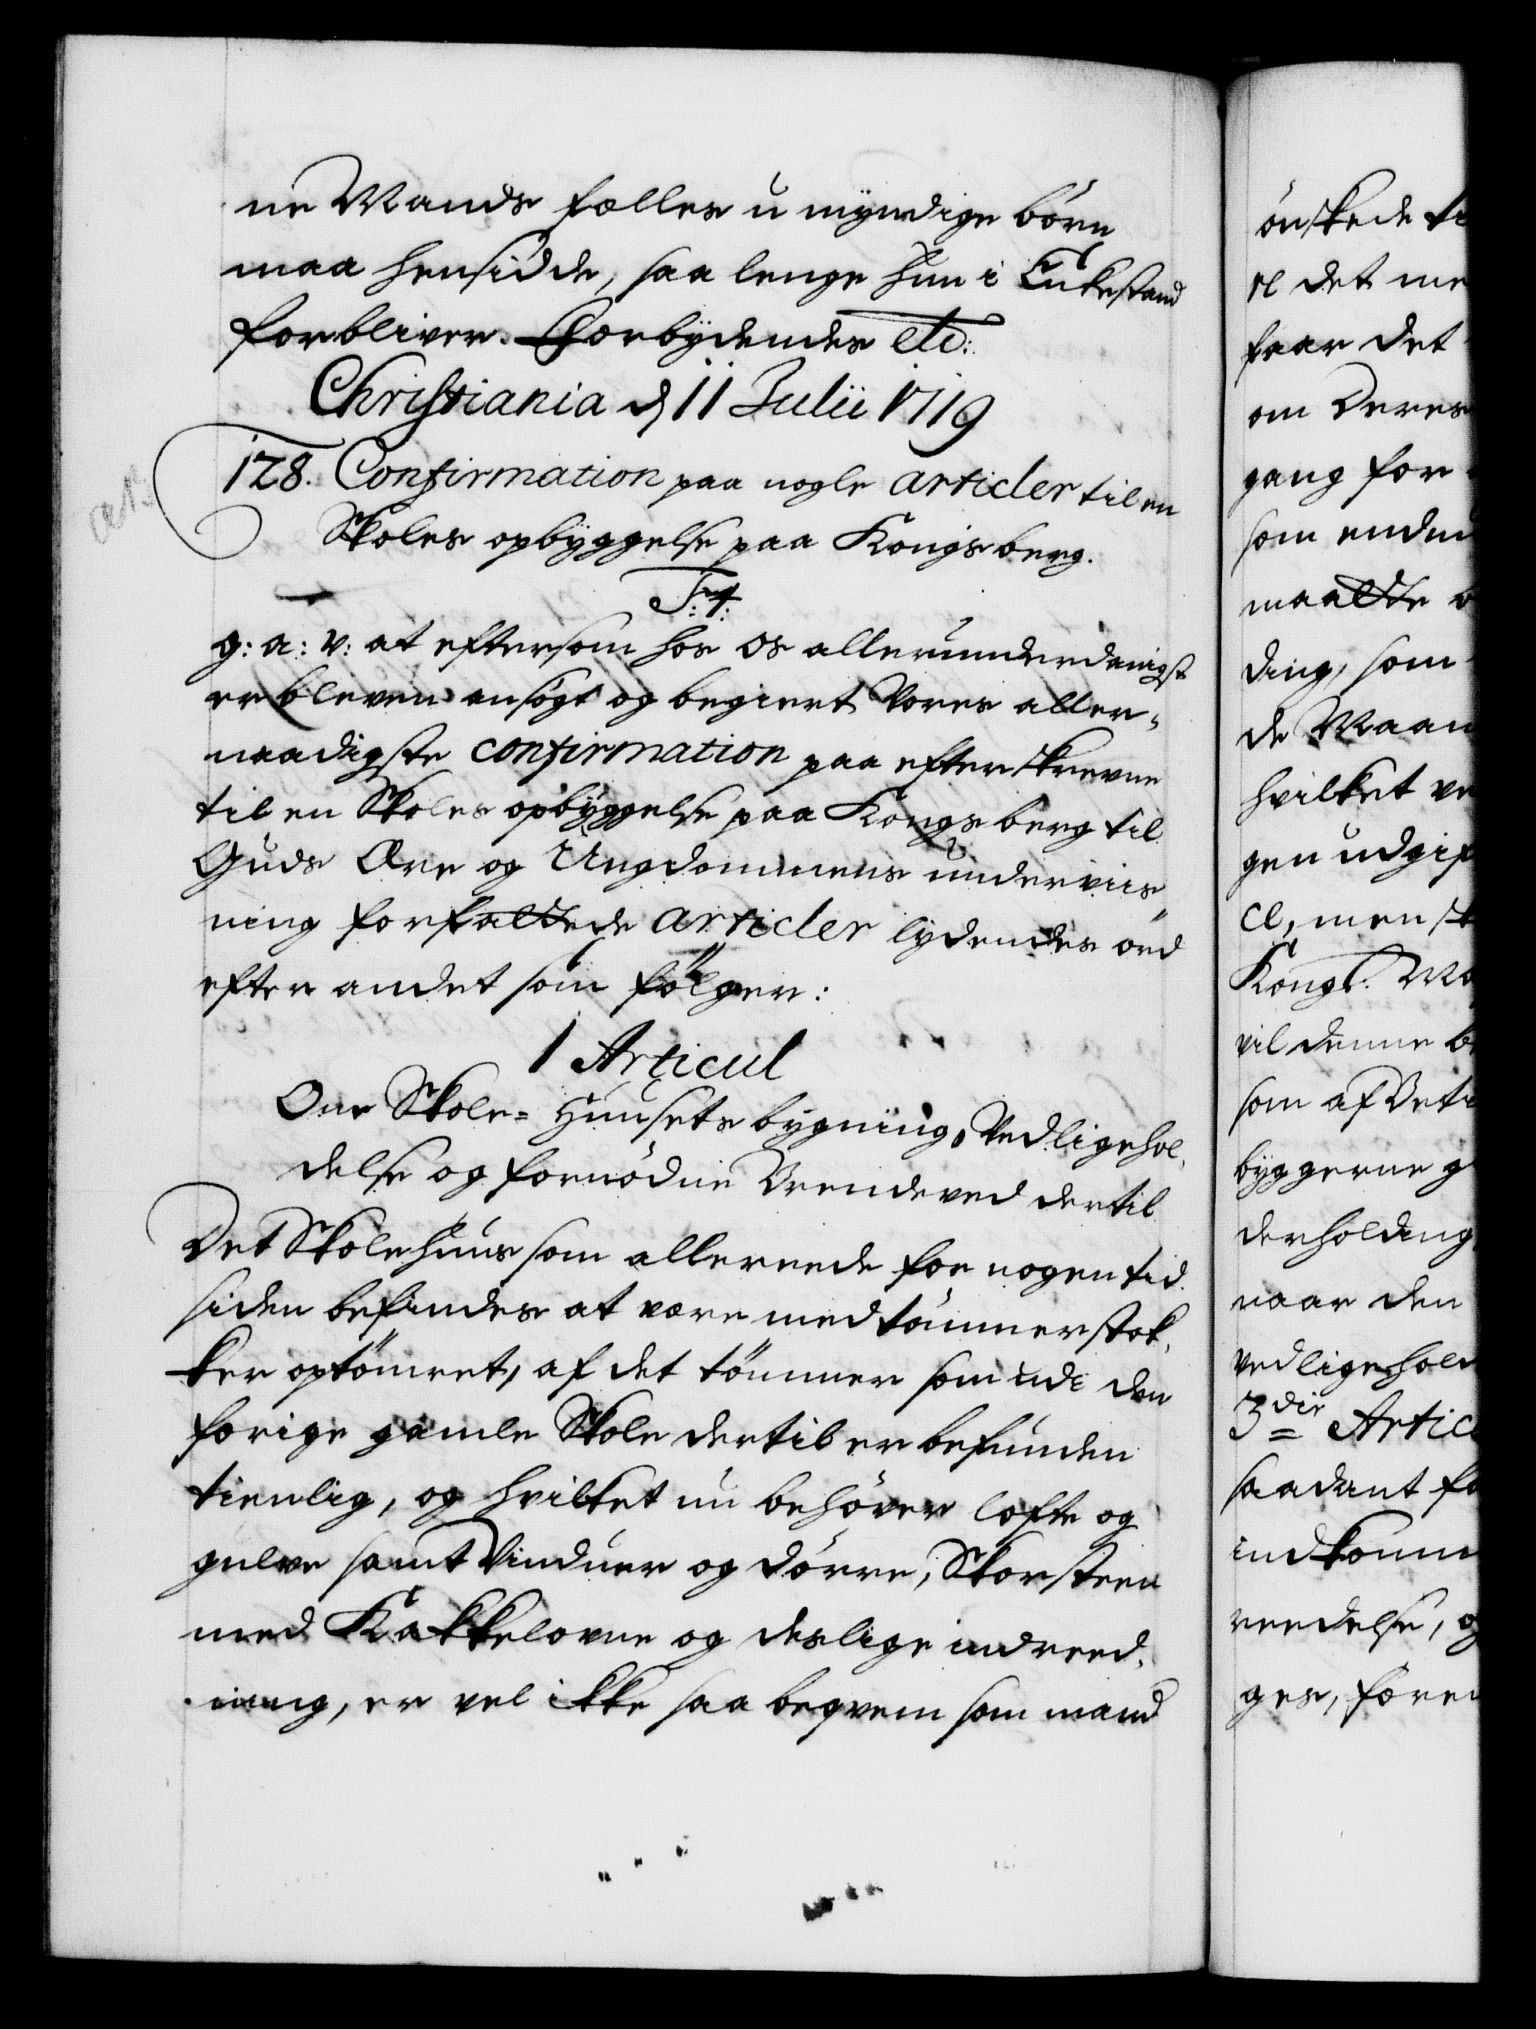 ne Mands fælles umyndige börn
maa hensidde, saa lenge hun i Enkestand
forbliver. Forbydendes etc:
Christiania d 11 Julii 1719
128. Confirmation paa nogle articler til en
Skoles opbyggelse paa Kongsberg.
F: 4:
g: a: v: at eftersom hos os allerunderdanigst
er bleven ansögt og begiert Vores aller„
naadigste confirmation paa efterskrevne
til en Skoles opbyggelse paa Kongsberg til
Guds Ære og Ungdommens underviis„
ning forfattede articler lydendes ord
efter andet som fölger:
1 Articul
Om Skole= Huusets bygning, Vedligehol„
delse og fornödne Brendeved dertil
Det Skolehuus som allerede for nogen tid
siden befindes at være med tömmerstok„
ker optömret, af det tömmer som udi den
forige gamle Skole dertil er befunden
tienlig, og hvilket nu behöver lofte og
gulve samt Vinduer og dörre, Skorsteen
med Kakkelovne og deslige indreed„
ning, er vel ikke saa beqvem som mand
önskede ti
el det me
faar det
om Deres
gang for
som endnu
maatte
ding, som
de Maan
hvilket ve
gen udgif
cl, men sk
Kongl. Ma
vil denne be
som af Beti
byggerne g
derholding
naar den
vedligehold
3die Artic
saadant fo
indkomm
reedelse, og
ges, foren